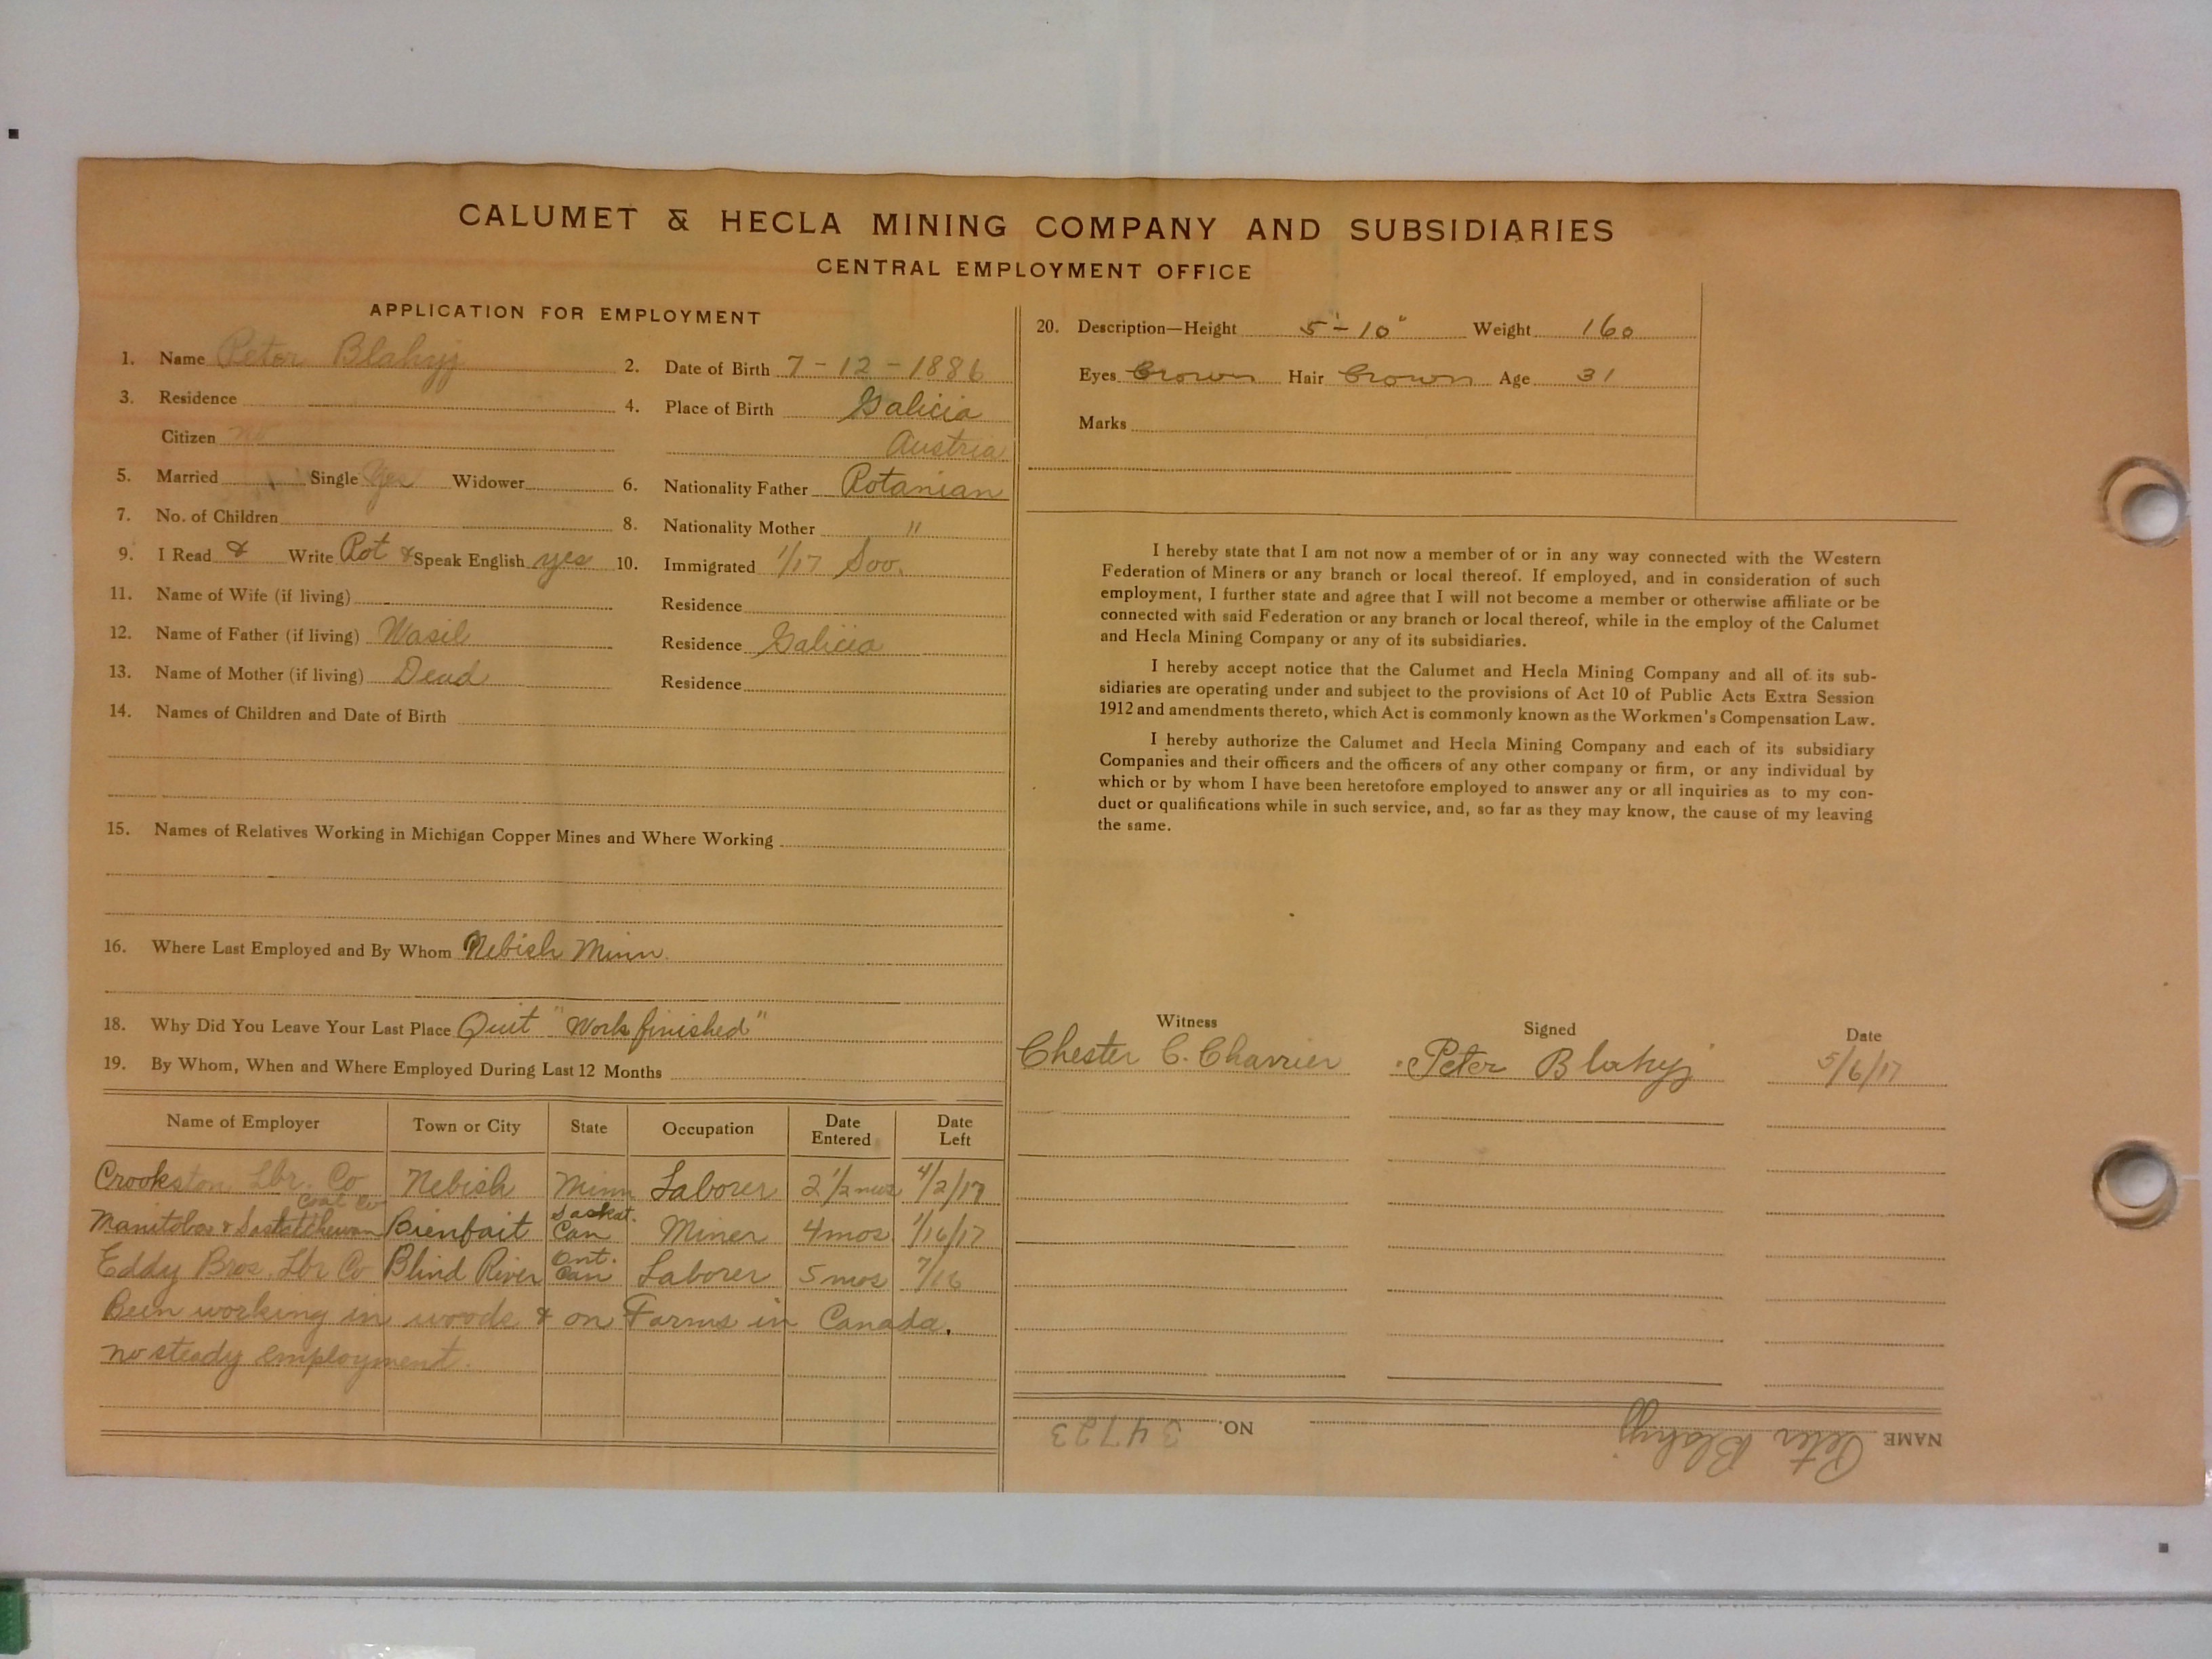 CALUMET & HECLA MINING COMPANY AND SUBSIDIARIES
CENTRAL EMPLOYMENT OFFICE
APPLICATION FOR EMPLOYMENT
1. Name Peter Blahyj 2. Date of Birth 7-12-1886
3. Residence 4. Place of Birth Galicia
Citizen no Austria
5. Married Single Yes Widower 6. Nationality Father Rotanian
7. No. of Children 8. Nationality Mother "
9. I Read & Write Rot & Speak English yes 10. Immigrated 1/17 Soo.
11. Name of Wife (if living) Residence
12. Name of Father (if living) Wasil Residence Galicia
13. Name of Mother (if living) Dead Residence
14. Names of Children and Date of Birth
15. Names of Relatives Working in Michigan Copper Mines and Where Working
16. Where Last Employed and By Whom Nebish Minn.
18. Why Did You Leave Your Last Place Quit "Work finished"
19. By Whom, When and Where Employed During Last 12 Months
Name of Employer Town or City State Occupation Date Entered Date Left
Crookston Lbr. Co Nebish Minn Laborer 2 1/2 mos 4/2/17
Manitoba & Saskatchewan Coal Co Bienfait Saskat. Can Miner 4 mos 1/16/17
Eddy Bros. Lbr Co Blind River Ont. Can Laborer 5 mos 7/16
Been working in woods & on Farms in Canada.
no steady employment.
20. Description—Height 5'-10" Weight 160
Eyes Brown Hair Brown Age 31
Marks
I hereby state that I am not now a member of or in any way connected with the Western
Federation of Miners or any branch or local thereof. If employed, and in consideration of such
employment, I further state and agree that I will not become a member or otherwise affiliate or be
connected with said Federation or any branch or local thereof, while in the employ of the Calumet
and Hecla Mining Company or any of its subsidiaries.
I hereby accept notice that the Calumet and Hecla Mining Company and all of its sub-
sidiaries are operating under and subject to the provisions of Act 10 of Public Acts Extra Session
1912 and amendments thereto, which Act is commonly known as the Workmen's Compensation Law.
I hereby authorize the Calumet and Hecla Mining Company and each of its subsidiary
Companies and their officers and the officers of any other company or firm, or any individual by
which or by whom I have been heretofore employed to answer any or all inquiries as to my con-
duct or qualifications while in such service, and, so far as they may know, the cause of my leaving
the same.
Witness Signed Date
Chester C. Charrier Peter Blahyj 5/6/17
NAME Peter Blahyj NO. 34723